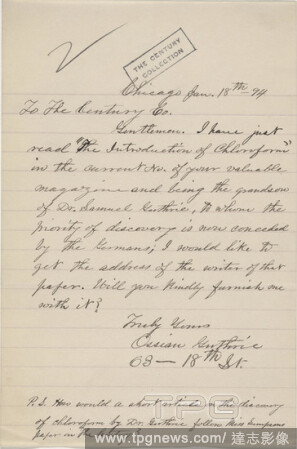 THE CENTURY
COLLECTION
Chicago Jan. 18th -94
To The Century Co.
Gentlemen. I have just
read "The Introduction of Chloroform"
in the current No. of your valuable
magazine and being the grandson
of Dr. Samuel Guthrie, to whom the
priority of discovery is now conceded
by the Germans, I would like to
get the address of the writer of that
paper. Will you kindly furnish me
with it?
Truly Yours
Ossian Guthrie
63 - 18th St.
P.S. How would a short article on the discovery
of chloroform by Dr. Guthrie follow Miss Simpsons
paper in
TPG
www.tpgnews.com / 達志影像